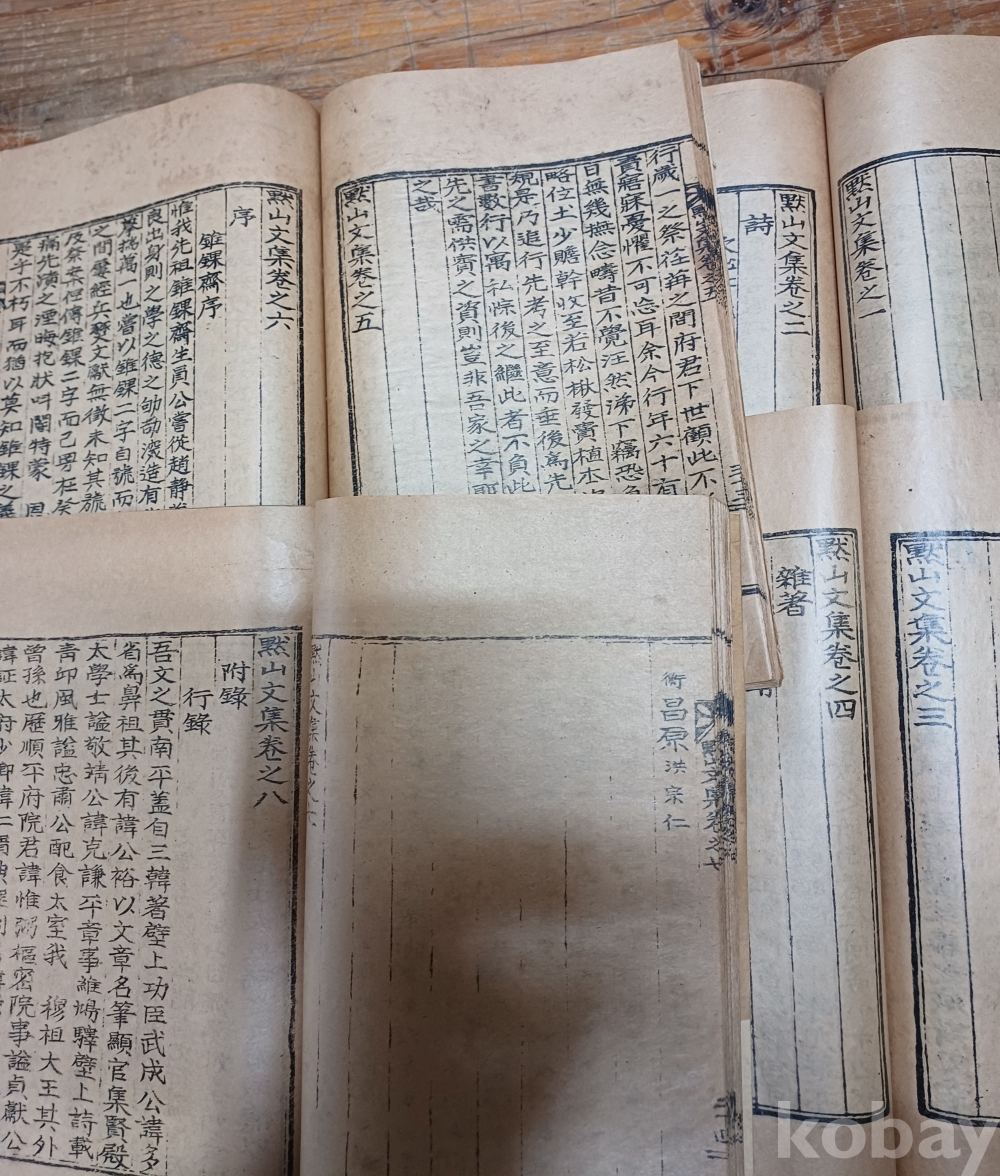 默山文集卷之一
默山文集卷之二
詩
行歲
之祭往苒之間府君下世顧此不
責寤寐憂懼不可忘耳余今行年六十有
日無幾撫念疇昔不覺汪然涕下竊恐
略位土少贍幹收至若松楸發賣植本
規是乃追行先考之至意而垂後爲先
書數行以寓私悰後之繼此者不負此
先之需供實之資則豈非吾家之幸耶
之哉
默山文集卷之五
默山文集卷之六
序
錐錁齋序
惟我先祖錐錁齋生員公嘗從趙靜
良出身則之學之德之劬劬深造有
摹揣萬一也嘗以錐錁二字自號而
之間屢經兵燹文獻無徵未知其號
及祭案經傳錐錁二字而已粤在癸
痛先演之湮晦抱狀叫閽特蒙 恩
是乎不朽耳而猶以莫知錐錁之義
默山文集卷之三
默山文集卷之四
雜著
衕
昌原洪宗仁
默山文集卷之七
默山文集卷之八
附錄
行錄
吾文之貫南平盖自三韓著壁上功臣武成公諱多
省爲鼻祖其後有諱公裕以文章名筆顯官集賢殿
太學士謚敬靖公諱克謙平章事維鳩驛壁上詩載
靑卬風雅謚忠肅公配食太室我 穆祖大王其外
曾孫也歷順平府院君諱惟弼樞密院事謚貞獻公
kobay